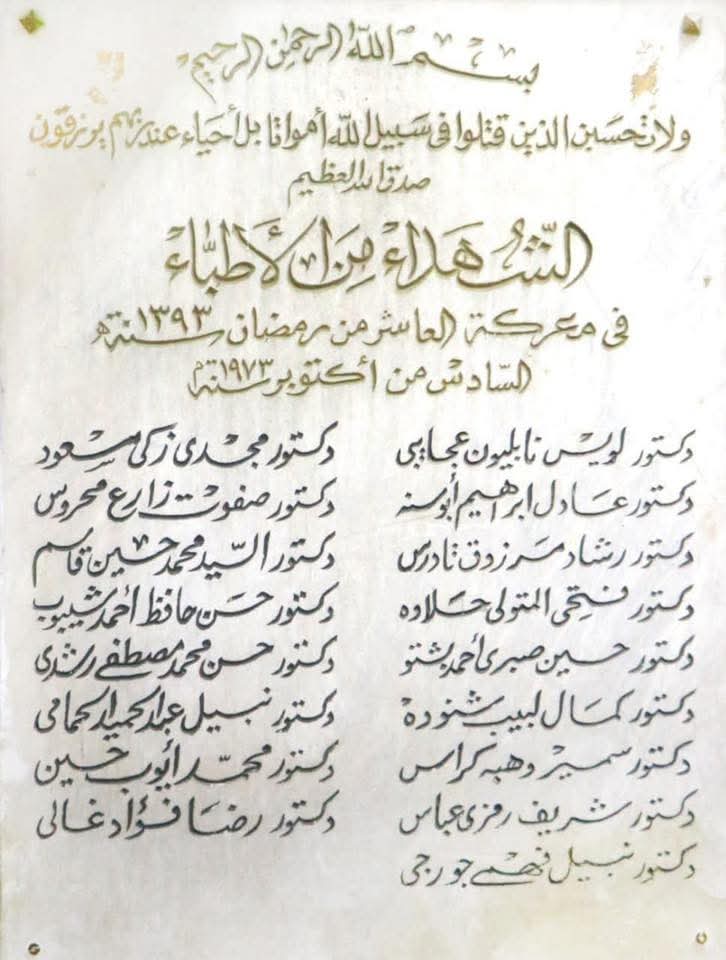 بسم الله الرحمن الرحيم
ولا تحسبن الذين قتلوا في سبيل الله أمواتا بل أحياء عند ربهم يرزقون
صدق الله العظيم
الشهداء من الأطباء
في معركة العاشر من رمضان سنة ١٣٩٣ هـ
السادس من أكتوبر سنة ١٩٧٣ م
دكتور لويس نابليون عجايبى
دكتور عادل ابراهيم أبوسنه
دكتور رشاد مرزوق تادرس
دكتور فتحى المتولى حلاوه
دكتور حسين صبرى أحمد بشتو
دكتور كمال لبيب شنوده
دكتور سمير وهبه كراس
دكتور شريف رمزى عباس
دكتور نبيل فهمى جورجى
دكتور مجدى زكى مسعود
دكتور صفوت زارع محروس
دكتور السيد محمد حسين قاسم
دكتور حسن حافظ أحمد شيبوب
دكتور حسن محمد مصطفى رشدى
دكتور نبيل عبد الحميد الحمامى
دكتور محمد أيوب حسين
دكتور رضا فؤاد غالى